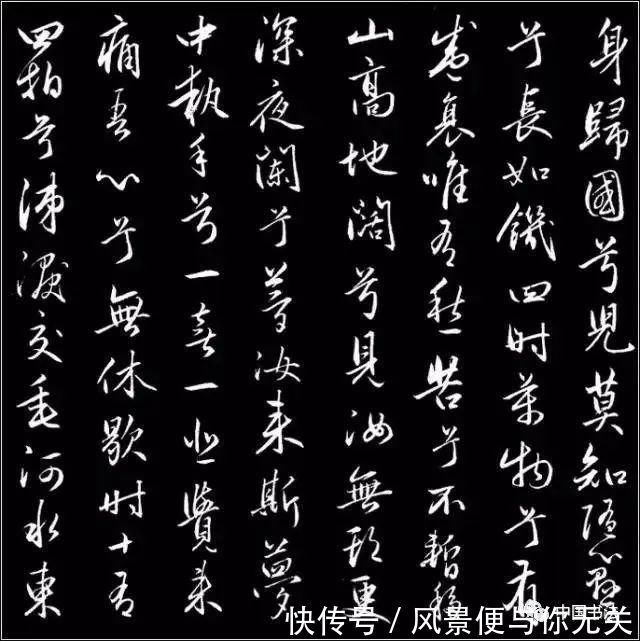 身歸國兮兒莫知隨心懸
兮長如饑四时萬物兮有
盛衰唯有愁苦兮不暫移
山高地闊兮見汝無期更
深夜闌兮夢汝來斯夢
中執手兮一喜一悲覺來
痛吾心兮無休歇时十有
四拍兮涕淚交垂河水東
中国书法
快传号 / 风景便与你无关